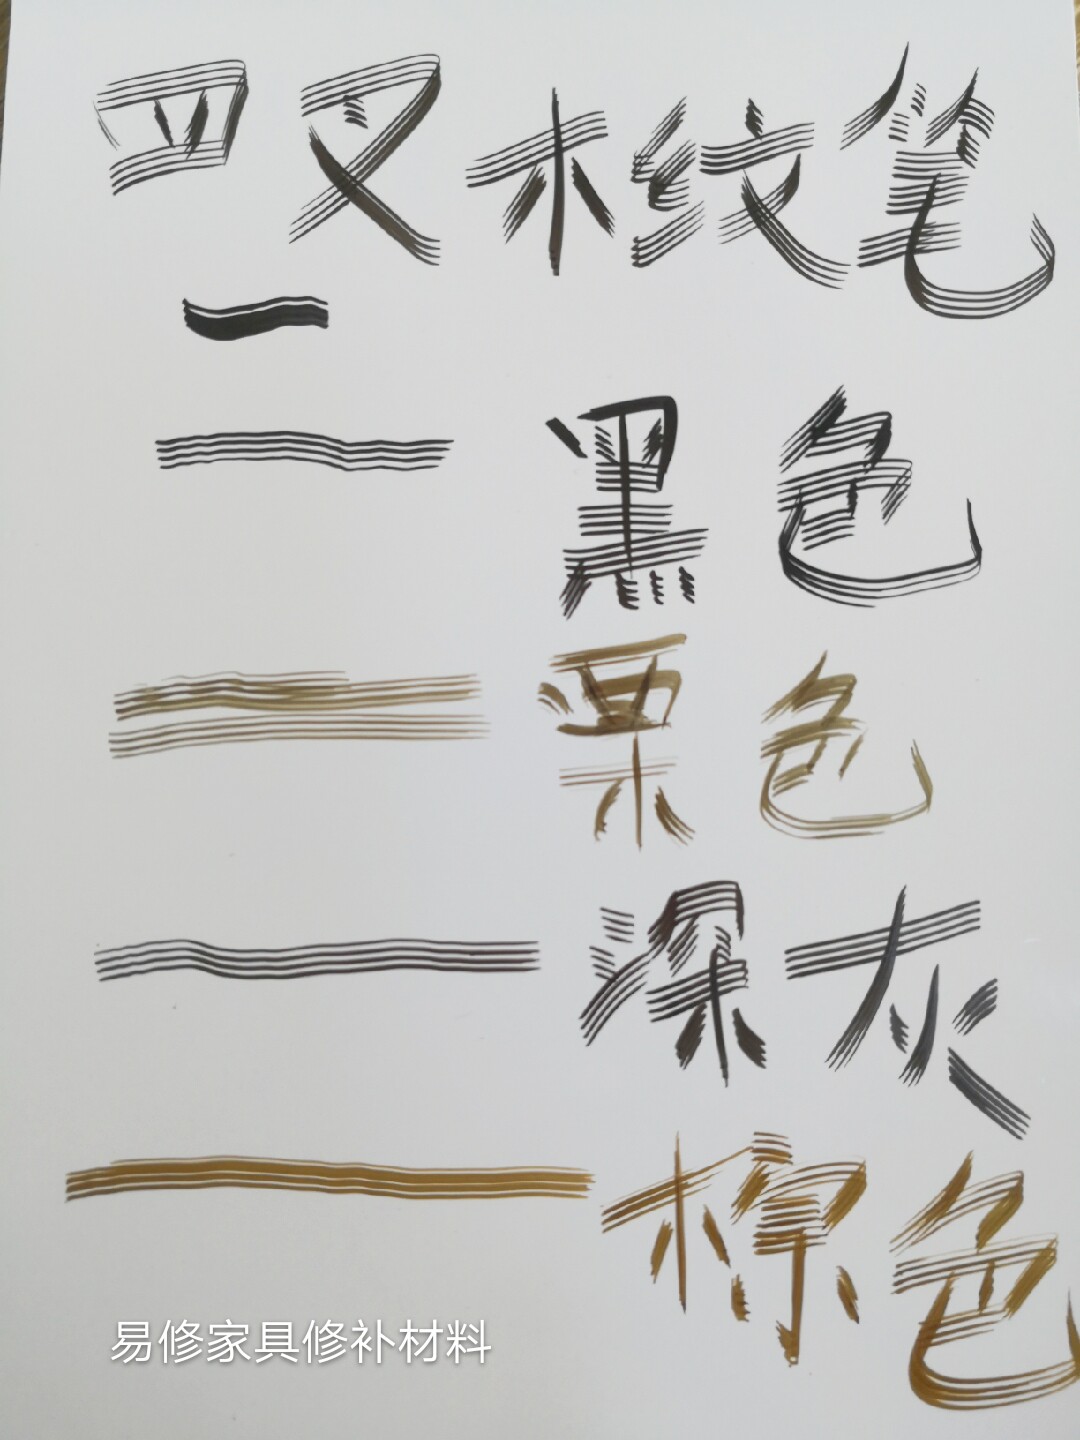 四叉木纹笔
黑色
栗色
深灰
棕色
易修家具修补材料